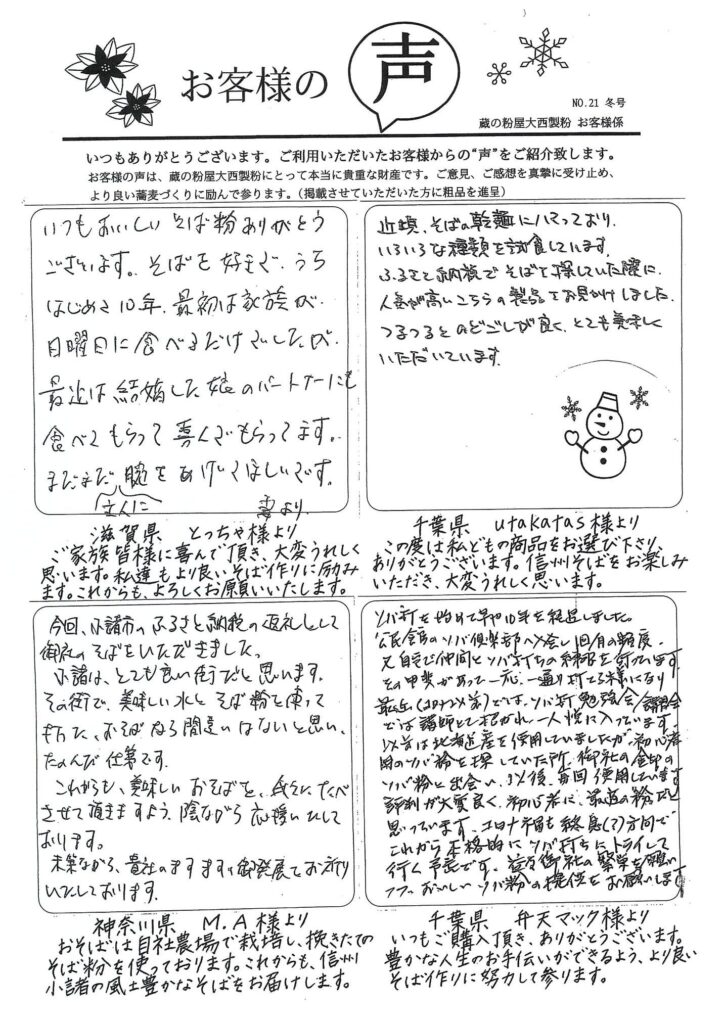 お客様の 声
NO.21 冬号
蔵の粉屋大西製粉 お客様係
いつもありがとうございます。ご利用いただいたお客様からの“声”をご紹介致します。
お客様の声は、蔵の粉屋大西製粉にとって本当に貴重な財産です。ご意見、ご感想を真摯に受け止め、
より良い蕎麦づくりに励んで参ります。(掲載させていただいた方に粗品を進呈)
いつもおいしいそば粉ありがとう
ございます。そばを好きで、うち
はじめて10年、最初は家族が、
日曜日に食べるだけでしたが、
最近は結婚した娘のパートナーにも
食べてもらって喜んでもらってます。
まだまだ腕をあげてほしいです。
主人に 妻より
滋賀県 とっちゃ様より
ご家族皆様に喜んで頂き、大変うれしく
思います。私達もより良いそば作りに励み
ます。これからも、よろしくお願いいたします。
近頃、そばの乾麺にハマっており、
いろいろな種類を試食しています。
ふるさと納税でそばを探していた際に、
人気が高いこちらの製品をお見かけしました。
つるつるとのどごしが良く、とても美味しく
いただいています。
千葉県 utakatas様より
この度は私どもの商品をお選び下さり、
ありがとうございます。信州そばをお楽しみ
いただき、大変うれしく思います。
今回、小諸市のふるさと納税の返礼として
御社のそばをいただきました。
小諸は、とても良い街だと思います。
その街で、美味しい水とそば粉を使って
打った、おそばなら間違いはないと思い、
たのんだ仕第です。
これからも、美味しいおそばを、 たべ
させて頂きますよう、陰ながら応援いたして
おります。
末筆ながら、貴社のますますの御発展をお祈り
いたしております。
神奈川県 M.A様より
おそばは自社農場で栽培し、挽きたての
そば粉を使っております。これからも、信州
小諸の風土豊かなそばをお届けします。
ソバ打を始めて早や10年を経過しました。
公民館のソバ倶楽部へ入会し1回/月の頻度、
又自宅で仲間とソバ打ちの練習を行っています
その甲斐があって一応、一通り打てる様になり
最近(コロナ以前)では、ソバ打勉強会/講習会
では講師として招かれ一人悦に入っています。
以前は北海道産を使用していましたが、初心者
用のソバ粉を探していた所、御社の金印の
ソバ粉と出会い、以後、毎回使用しています
評判が大変良く、初心者に、最適の粉だと
思っています。コロナ禍も終息(?)方向で
これから本格的にソバ打ちにトライして
行く予定です。益々御社の繁栄を願い
つつ、おいしいソバ粉の提供をお願いします
千葉県 弁天マック様より
いつもご購入頂き、ありがとうございます。
豊かな人生のお手伝いができるよう、より良い
そば作りに努力して参ります。